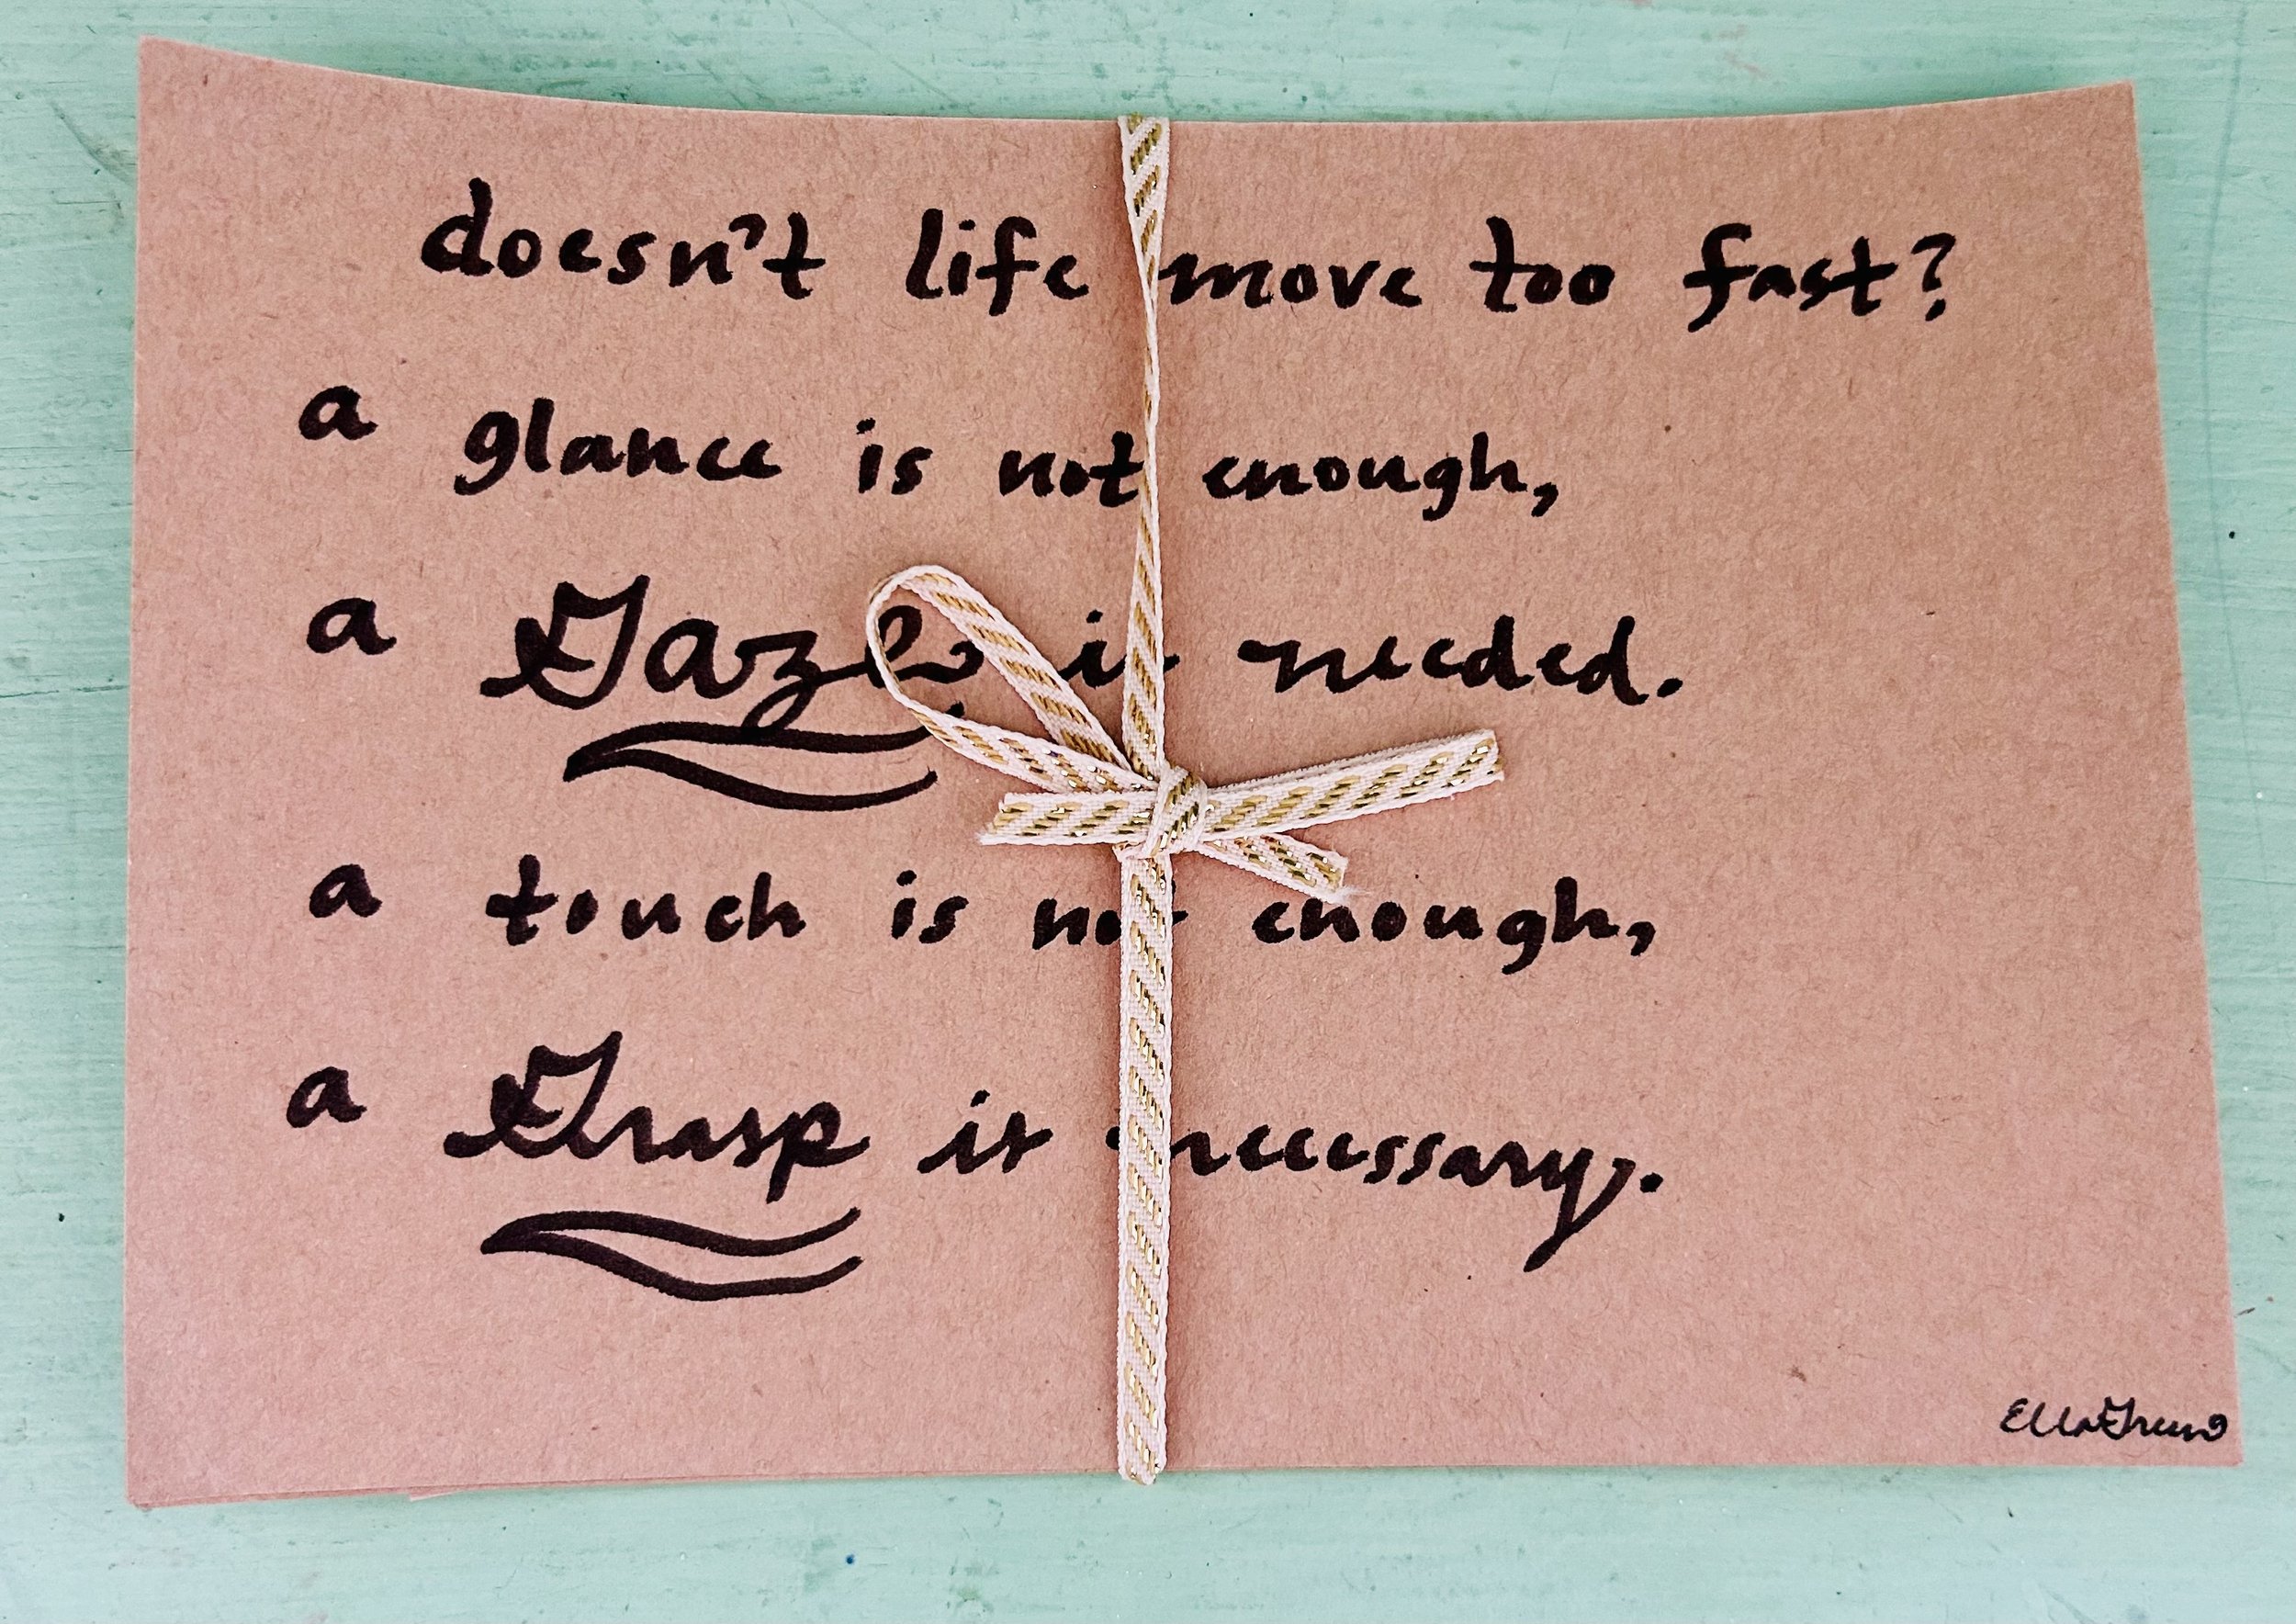 doesn't life move too fast?
a glance is not enough,
a Gaze is needed.
a touch is not enough,
a Grasp is necessary.